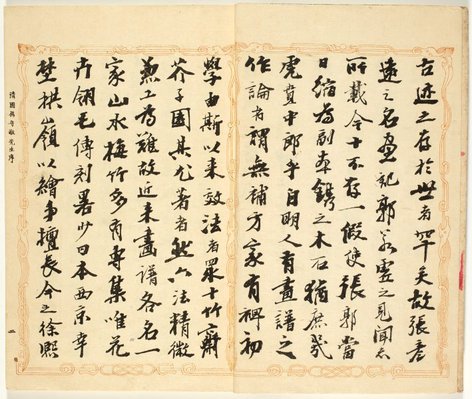 古迹之存於世者罕矣故張彥
遠之名畫記郭若虛之見聞志
所載今十不存一假使張郭當
日縮為副本鐫之木石猶庶幾
虎賁中郎乎自明人有畫譜之
作論者謂無補方家有裨初
學由斯以來效法者眾十竹齋
芥子園其尤著者然六法精微
兼工為難故近來畫譜各名一
家山水梅竹多有專集唯花
卉翎毛傳刻畧少日本西京幸
埜楳嶺以繪事擅長今之徐熙
清國先生序
二